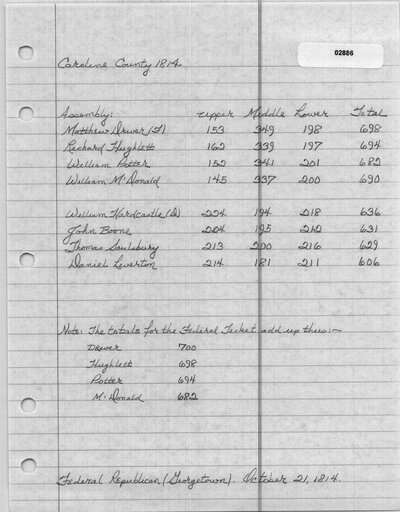 02886
Caroline County 1814
Assembly: Upper Middle Lower Total
Matthew Driver (F) 153 349 198 698
Richard Hughlett 162 339 197 694
William Potter 152 341 201 682
William McDonald 145 337 200 690
William Hardcastle (D) 224 194 218 636
John Boone 224 195 212 631
Thomas Saulsbury 213 200 216 629
Daniel Leverton 214 181 211 606
Note: The totals for the Federal Ticket add up thus:-
Driver 700
Hughlett 698
Potter 694
McDonald 682
Federal Republican (Georgetown). October 21, 1814.